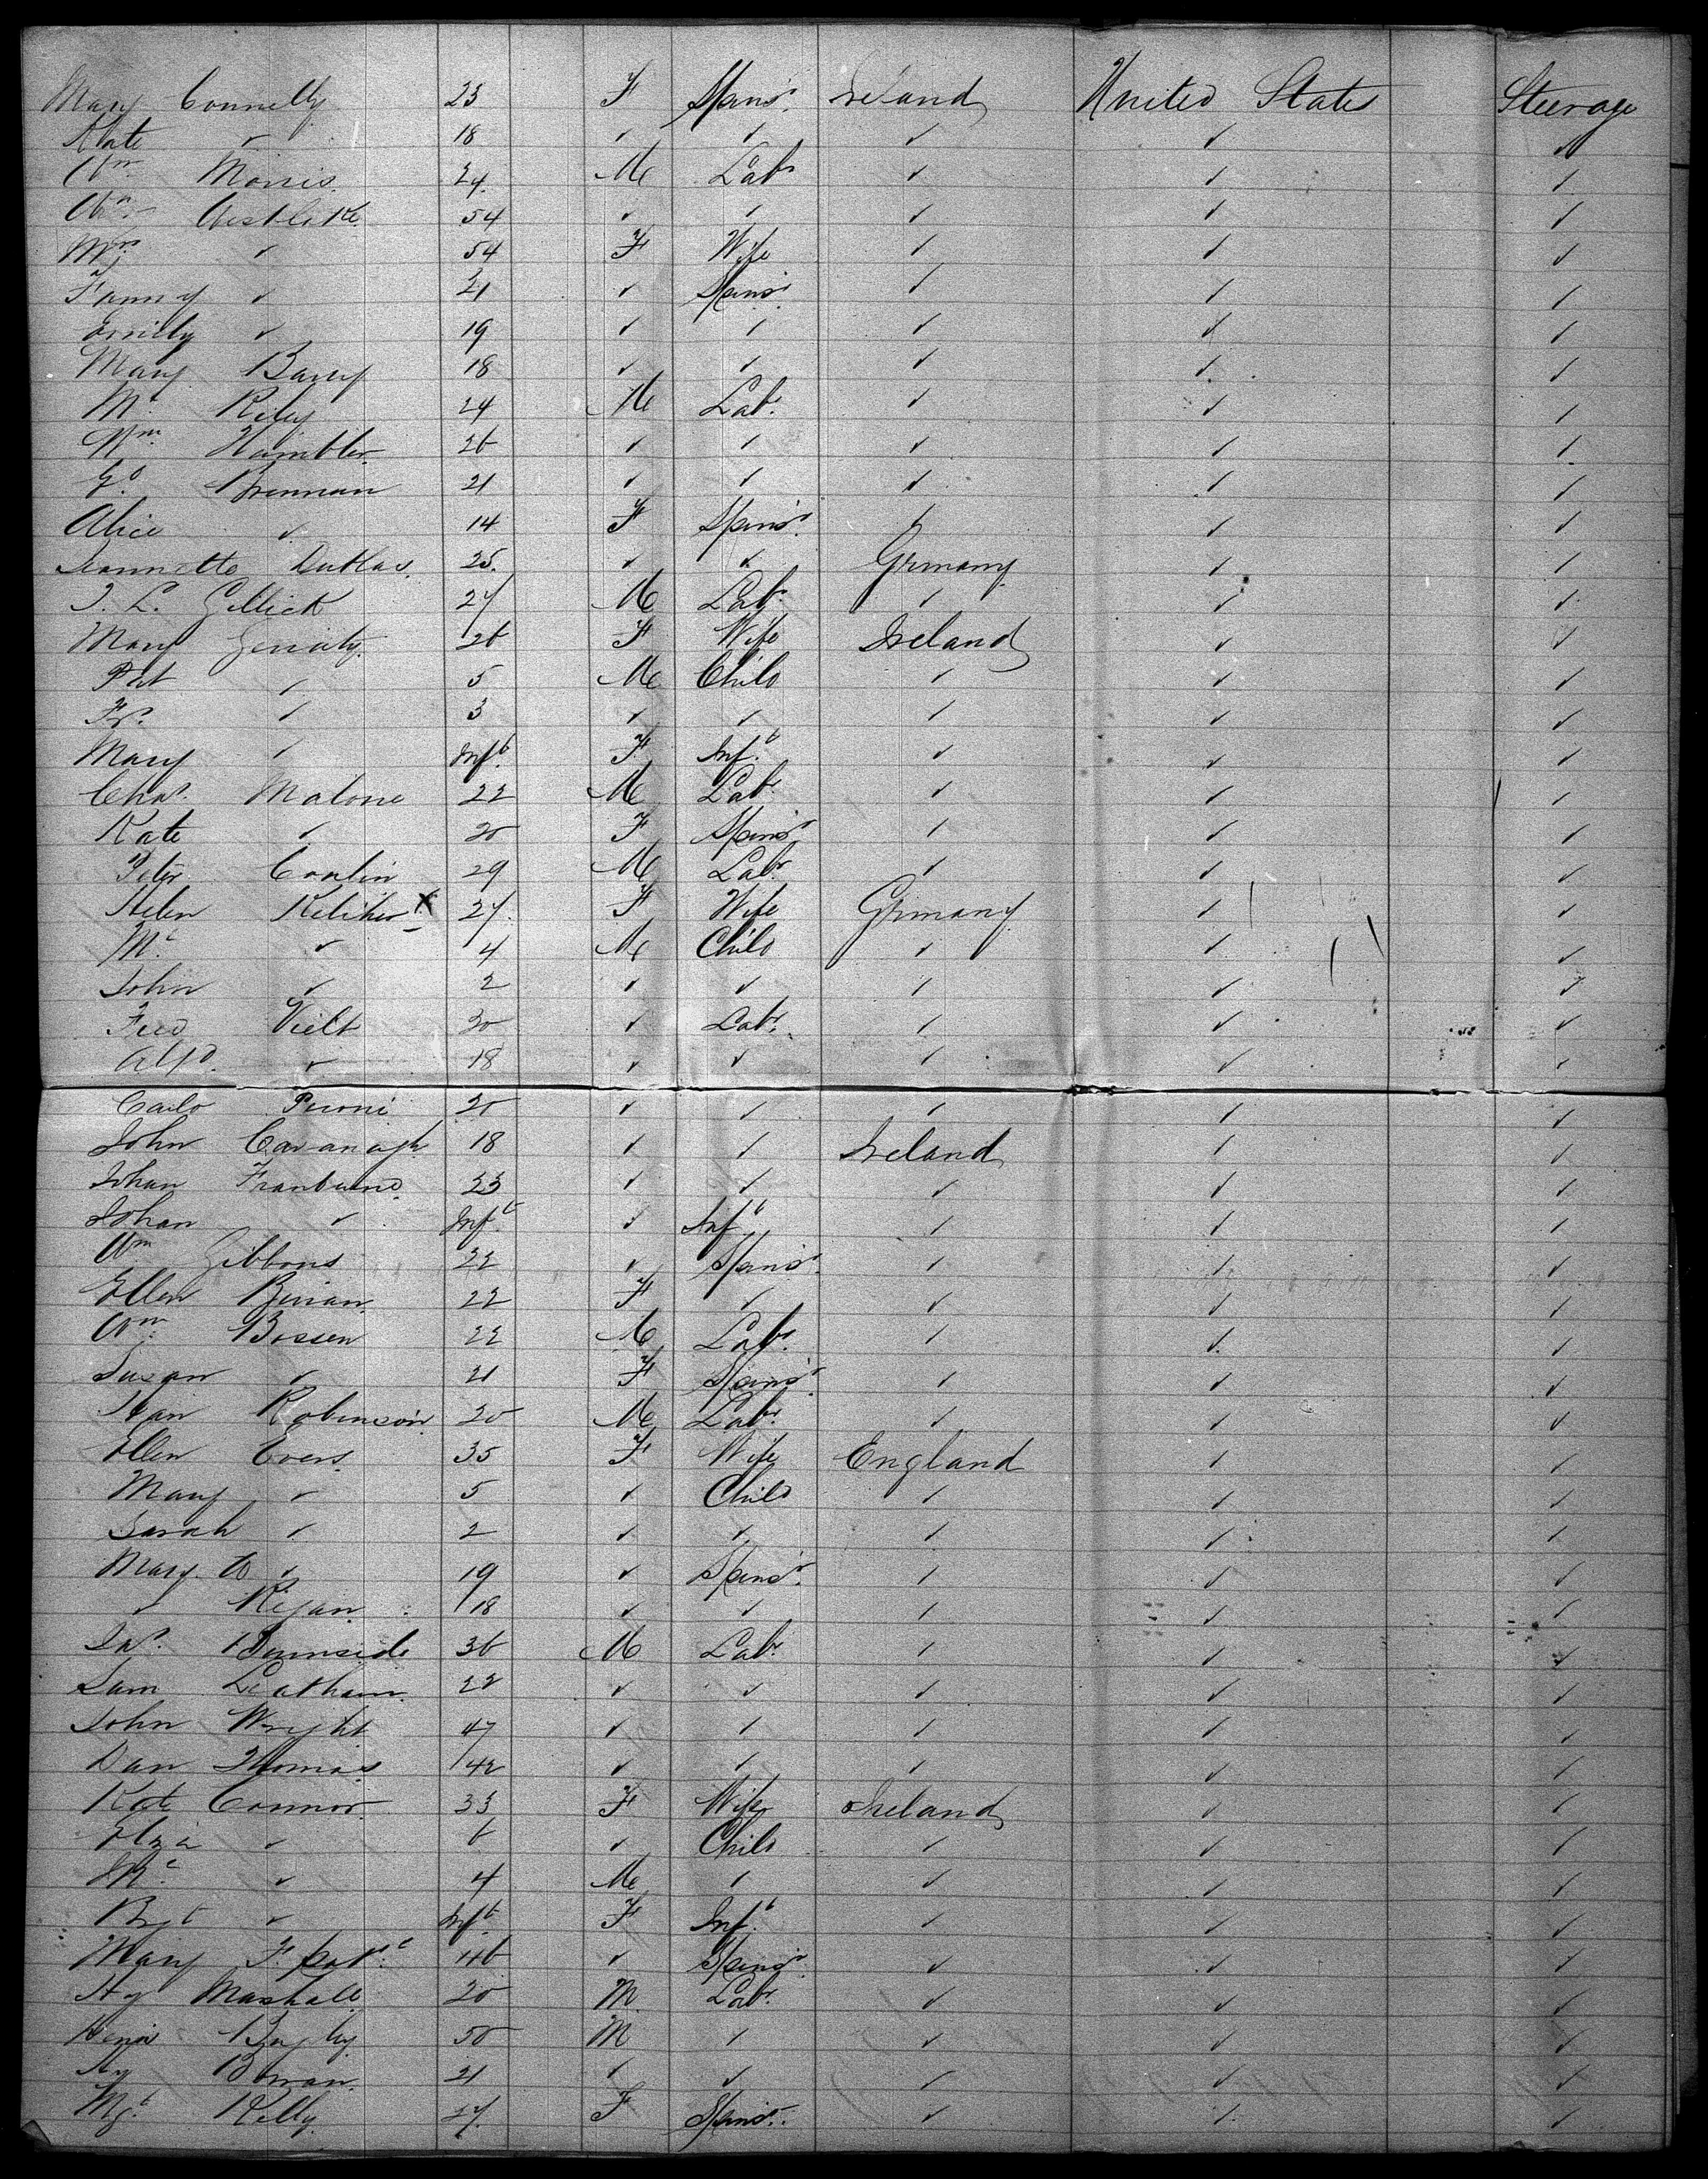 Mary Connelly 23 F Spinsr. Ireland United States Steerage
Kate ✓ 18 ✓ ✓ ✓ ✓ ✓
Wm. Morris 24 M Labr ✓ ✓ ✓
Wm. Westlake 54 ✓ ✓ ✓ ✓ ✓
Mrs. ✓ 54 F Wife ✓ ✓ ✓
Fanny ✓ 21 ✓ Spinsr. ✓ ✓ ✓
Emily ✓ 19 ✓ ✓ ✓ ✓ ✓
Mary Barry 18 ✓ ✓ ✓ ✓ ✓
Mt. Riley 24 M Labr. ✓ ✓ ✓
Wm. Hambler 26 ✓ ✓ ✓ ✓ ✓
Brennan 21 ✓ ✓ ✓ ✓ ✓
Alice ✓ 14 F Spinsr. ✓ ✓ ✓
Jeannette 25 ✓ ✓ Germany ✓ ✓
J. L. Gellick 27 M Labr. ✓ ✓ ✓
Mary Gerraty 26 F Wife Ireland ✓ ✓
Pat ✓ 5 M Child ✓ ✓ ✓
Frs. ✓ 3 ✓ ✓ ✓ ✓ ✓
Mary ✓ Inft. F Inft. ✓ ✓ ✓
Chas. Malone 22 M Labr. ✓ ✓ ✓
Kate ✓ 20 F Spinsr. ✓ ✓ ✓
Peter Conlin 29 M Labr. ✓ ✓ ✓
Helen Keliher X 27 F Wife Germany ✓ ✓
Ml. ✓ 4 M Child ✓ ✓ ✓
John ✓ 2 ✓ ✓ ✓ ✓ ✓
Fred Vielt 20 ✓ Labr. ✓ ✓ ✓
Alfd. ✓ 18 ✓ ✓ ✓ ✓ ✓
Carlo Peroni 20 ✓ ✓ ✓ ✓ ✓
John Cavanagh 18 ✓ ✓ Ireland ✓ ✓
Johan 23 ✓ ✓ ✓ ✓ ✓
Johan ✓ Inft. ✓ Inft. ✓ ✓ ✓
Wm Gibbons 22 ✓ Spinsr. ✓ ✓ ✓
Ellen 22 F ✓ ✓ ✓ ✓
Wm. Bossen 22 M Labr. ✓ ✓ ✓
Susan ✓ 21 F Spinsr. ✓ ✓ ✓
Robinson 20 M Labr. ✓ ✓ ✓
Ellen Evers 35 F Wife England ✓ ✓
Mary ✓ 5 ✓ Child ✓ ✓ ✓
Sarah ✓ 2 ✓ ✓ ✓ ✓ ✓
Mary ✓ 19 ✓ Spinsr. ✓ ✓ ✓
✓ Regan 18 ✓ ✓ ✓ ✓ ✓
Jas. Burnside 36 M Labr. ✓ ✓ ✓
Sam Leatham 22 ✓ ✓ ✓ ✓ ✓
John Wright 47 ✓ ✓ ✓ ✓ ✓
Dan Thomas 42 ✓ ✓ ✓ ✓ ✓
Kate Connor 33 F Wife Ireland ✓ ✓
Eliza ✓ 6 ✓ Child ✓ ✓ ✓
✓ 4 M ✓ ✓ ✓ ✓
Bgt ✓ Inft F Inft. ✓ ✓ ✓
Mary 46 ✓ Spinsr. ✓ ✓ ✓
Hy Mashall 20 M. Labr. ✓ ✓ ✓
50 M ✓ ✓ ✓ ✓
Hy 21 ✓ ✓ ✓ ✓ ✓
Mgt. Kelly 27 F Spinsr. ✓ ✓ ✓